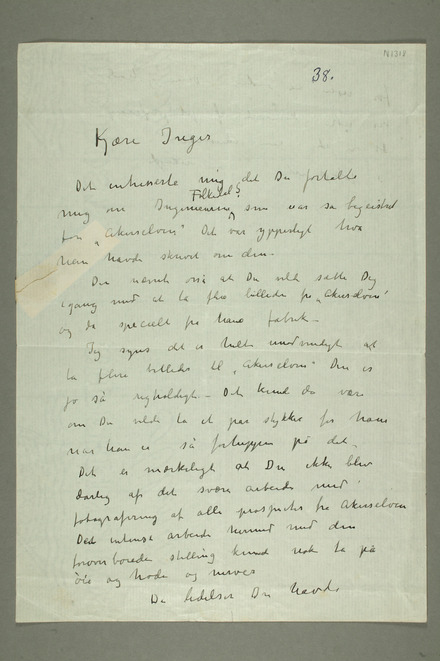 N1318
38.
Kjære Inger
Det interesserte mig det Du fortalte
Folkestad?
mig om Ingeniøren som var så begeistret
for „Akerselven" Det var ypperligt hva
han havde skrevet om den.
Du nævnte også at Du vilde sætte Dig
igang med at ta flere billeder fra „Akerselven"
og da specielt fra hans fabrik.
Jeg synes det er helt unødvendigt at
ta flere billeder til „Akerselven" Den er
jo så righoldig. Det kunde da være
om Du vilde ta et par stykker for ham
når han er så på det.
Det er mærkeligt at Du ikke blev
dårlig af det svære arbeide med
fotografering af alle prospekter fra Akerselven
Det intense arbeide kunde med den
foroverboiede stilling kunde nok ta på
og hode og nerver
De ledelser Du havde